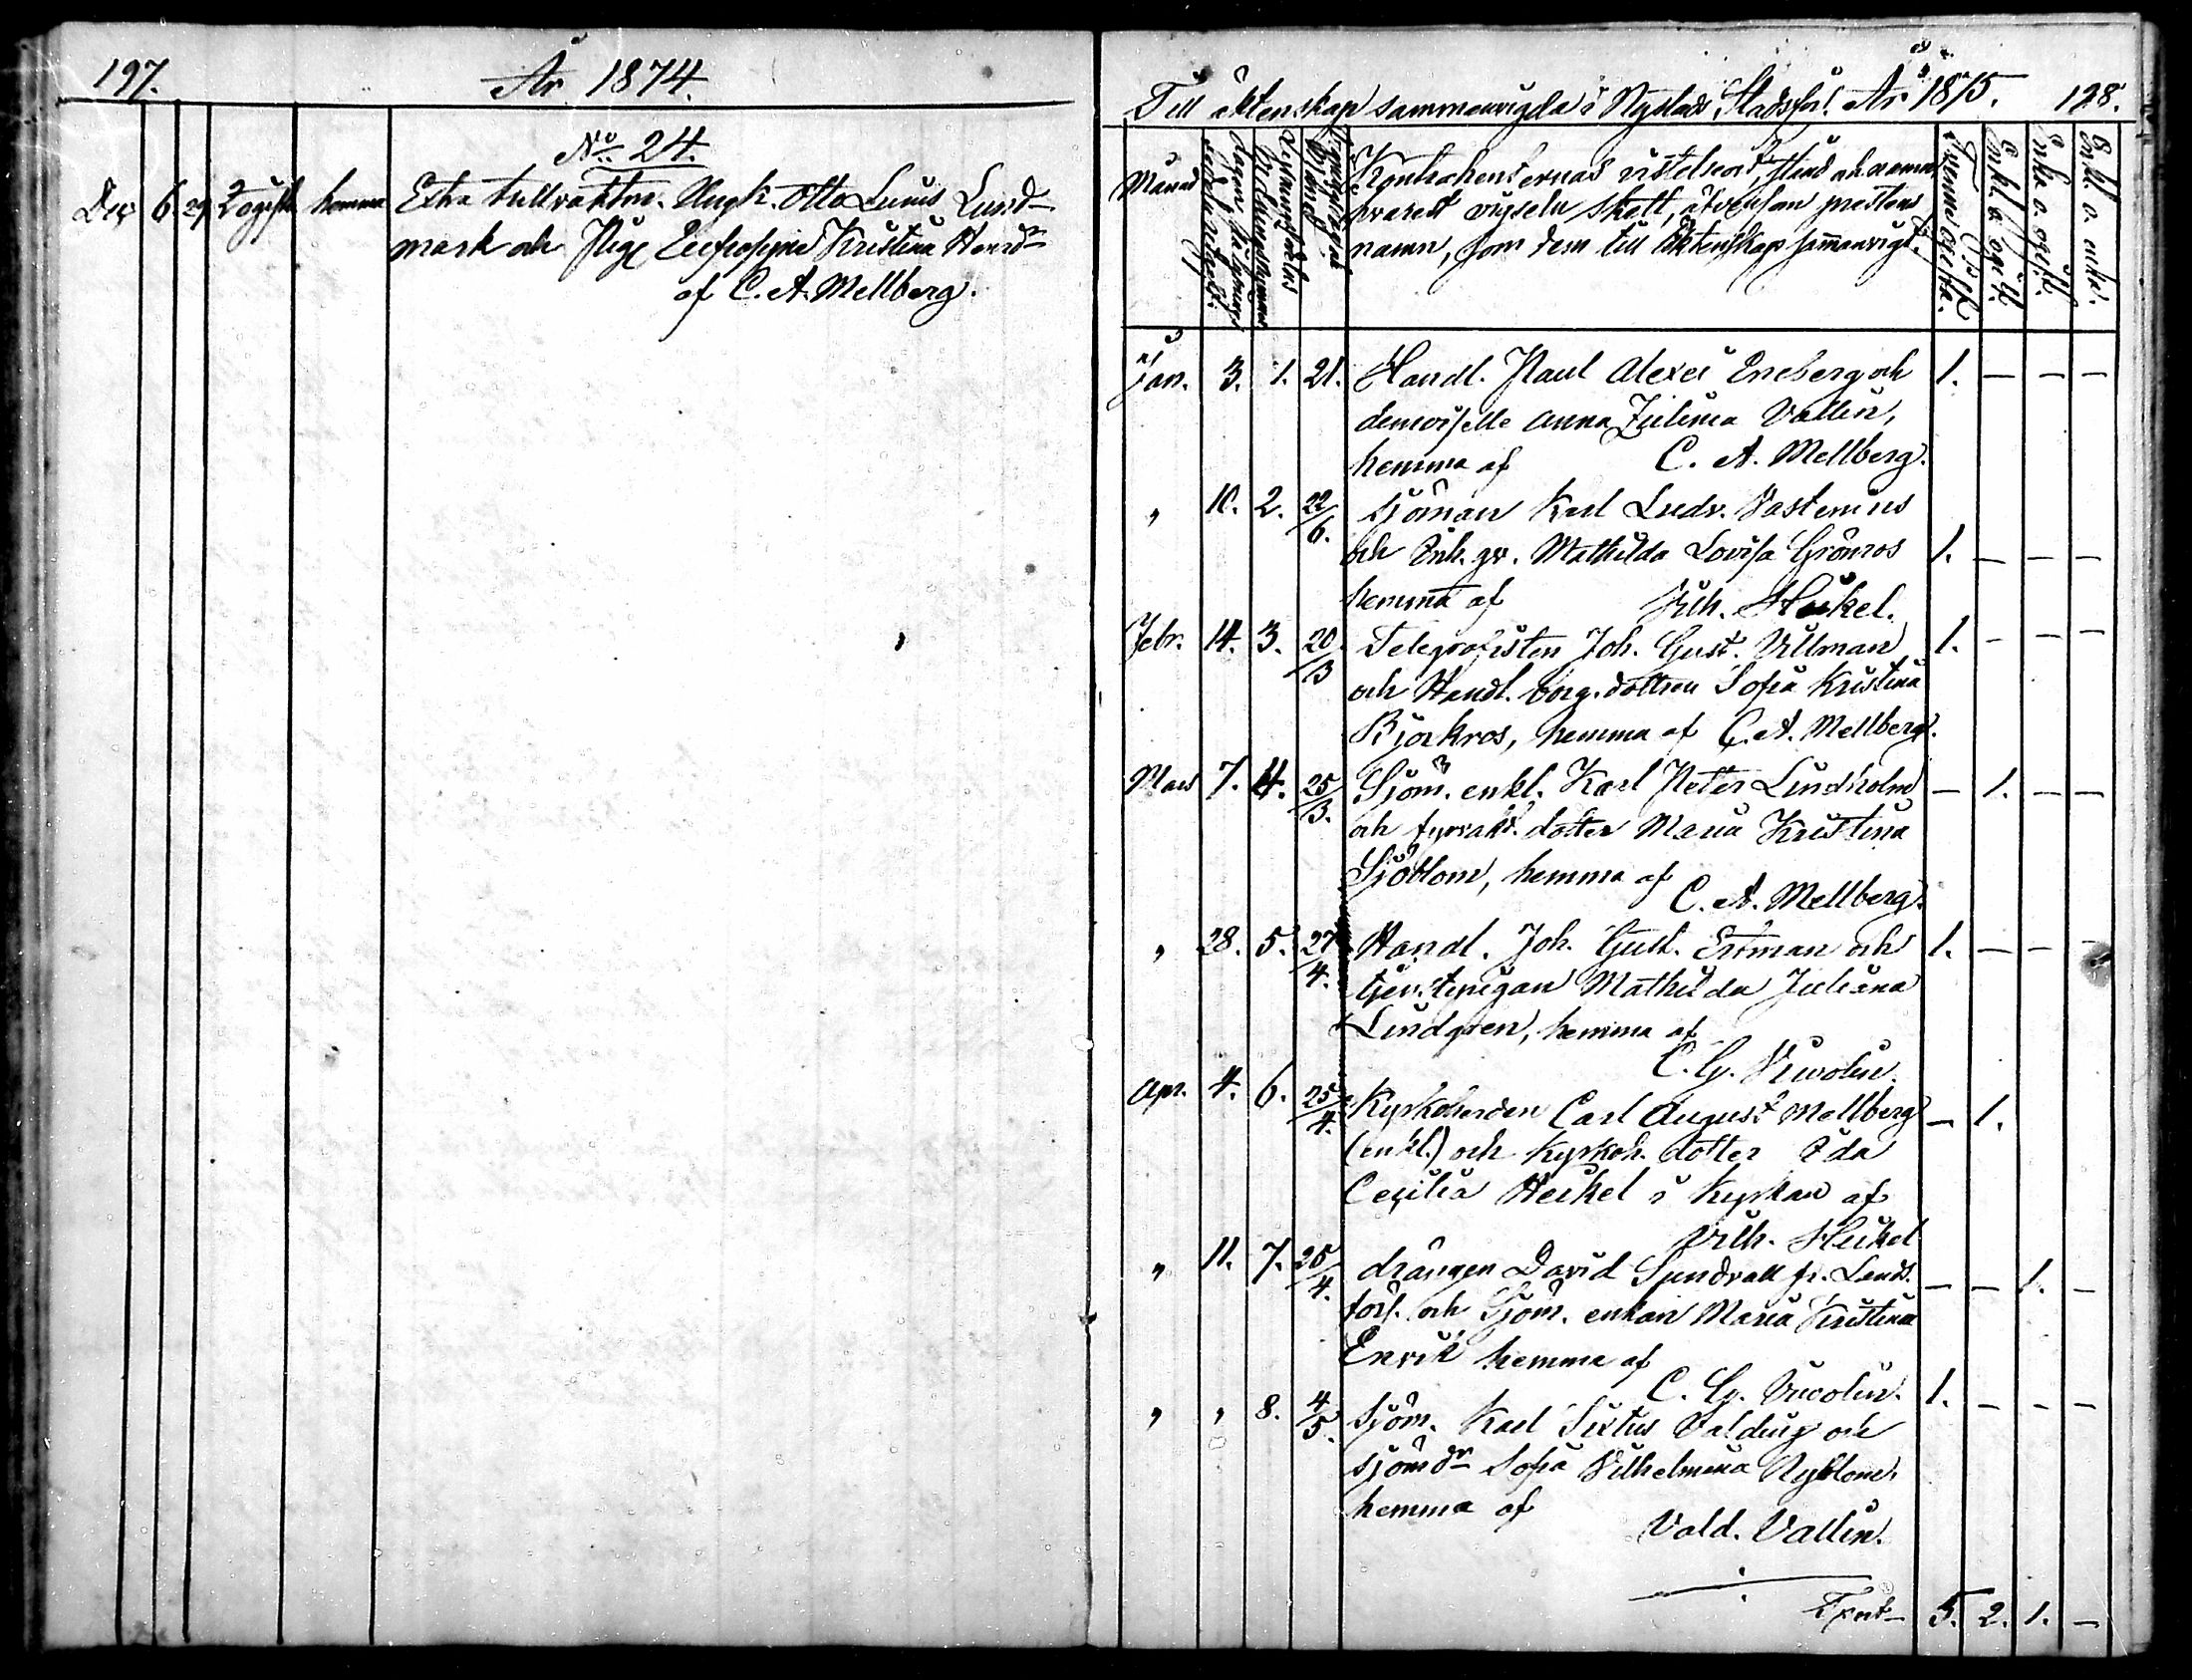 197.
År 1874.
No. 24.
Dec 6 29 2 ogifta hemma Extra tullvaktm. Ungk. Otto Linus Lund-
mark och Pig. Eufrosyne Kristina
af C. A. Mellberg.
Till äktenskap sammanvigda i Nystads Stadsförs. År 1875. 128.
Månad
Kontrahenternas vistelseort, stånd och namn
hvarest vigseln skett, äfvensom prestens
namn, som dem till äktenskap sammanvigt.
Tvenne ogifta.
Enkl. o. ogift.
Enka o. ogift.
Enkl. o. enka.
Jan. 3. 1. 21. Handl. Paul Alexei Eneberg och 1. — — —
demoiselle Anna Zulima Vallin,
hemma af C. A. Mellberg.
„ 10. 2. 22/6. Sjöman Karl Ludv. Vastenius
och Inh. gr. Mathilda Lovisa Grönroos 1. — — —
hemma af Vilh. Heikel.
Febr. 14. 3. 20/3 Telegrafisten Joh. Gust. Villman 1. — — —
och Handl. borg. dottren Sofia Kristina
Björkros, hemma af C. A. Mellberg.
Mars 7. 4. 25/3. Sjöm. enkl. Karl Peter Lindholm — 1. — —
och fyrvakt. dotter Maria Kristina
Sjöblom, hemma af
C. A. Mellberg.
„ 28. 5. 27/4. Handl. Joh. Gust. Ertman och 1. — — —
tjenstepigan Mathilda Juliana
Lindgren, hemma af
C. G.
Apr. 4. 6. 25/4. Kyrkoherden Carl August Mellberg — 1.
(enkl.) och Kyrkoh. dotter Ida
Cecilia Heikel i Kyrkan af
Vilh. Heikel
„ 11. 7. 25/4. drängen David Sundvall fr. Lands.
förs. och Sjöm. enkan Maria Kristina — — 1. —
Envik hemma af
C. G.
„ „ 8. 4/5. Sjöm. Karl Sixtus och 1. — — —
sjöm dr Sofia Vilhelmina Nyblom.
hemma af
Vald. Vallin.
Trsprt 5. 2. 1. —